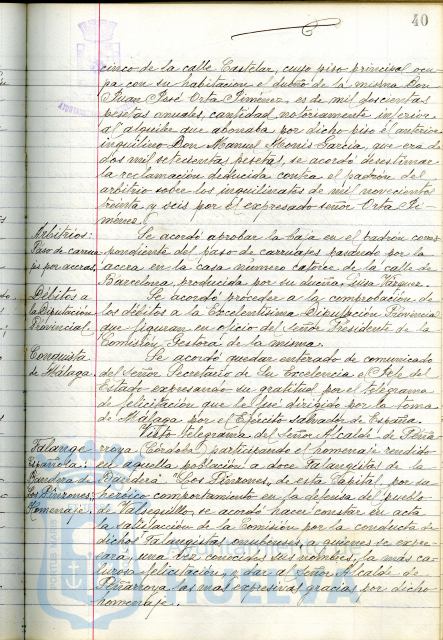 40
cinco de la calle Castelar, cuyo piso principal ocu-
pa con su habitación el dueño de la misma Don
Juan José Orta Jiménez, es de mil doscientas
pesetas anuales, cantidad notoriamente inferior
al alquiler que abonaba por dicho piso el anterior
inquilino Don Manuel García, que era de
dos mil setecientas pesetas, se acordó desestimar
la reclamación deducida contra el padrón del
arbitrio sobre los inquilinatos de mil novecientos
treinta y seis por el expresado señor Orta Ji-
ménez.
Arbitrios:
Paso de carrua-
jes por aceras.
Se acordó aprobar la baja en el padrón corres-
pondiente del paso de carruajes por la
acera en la casa número catorce de la calle de
Barcelona, producida por su dueña, Luisa Vázquez.
Débitos a
la Diputación
Provincial.
Se acordó proceder a la comprobación de
los débitos a la Excelentísima Diputación Provincial
que figuran en oficio del señor Presidente de la
Comisión Gestora de la misma.
Conquista
de Málaga.
Se acordó quedar enterado de comunicado
del Señor Secretario de Su Excelencia el Jefe del
Estado expresando su gratitud por el telegrama
de felicitación que le fué dirigido por la toma
de Málaga por el Ejército salvador de España.
Falange
Española:
Bandera de
Los Pinzones.
Homenaje.
Visto telegrama del Señor Alcalde de Peña-
rroya (Córdoba) participando el homenaje rendido
en aquella población a doce falangistas de la
Bandera "Los Pinzones" de esta Capital, por su
heróico comportamiento en la defensa del pueblo
de Valsequillo, se acordó hacer constar en acta
la satisfacción de la Comisión por la conducta de
dichos falangistas onubenses, a quienes se expre-
sará, una vez conocidos sus nombres, la más ca-
lurosa felicitación, y dar al Señor Alcalde de
Peñarroya las más expresivas gracias por dicho
homenaje.
HUELVA